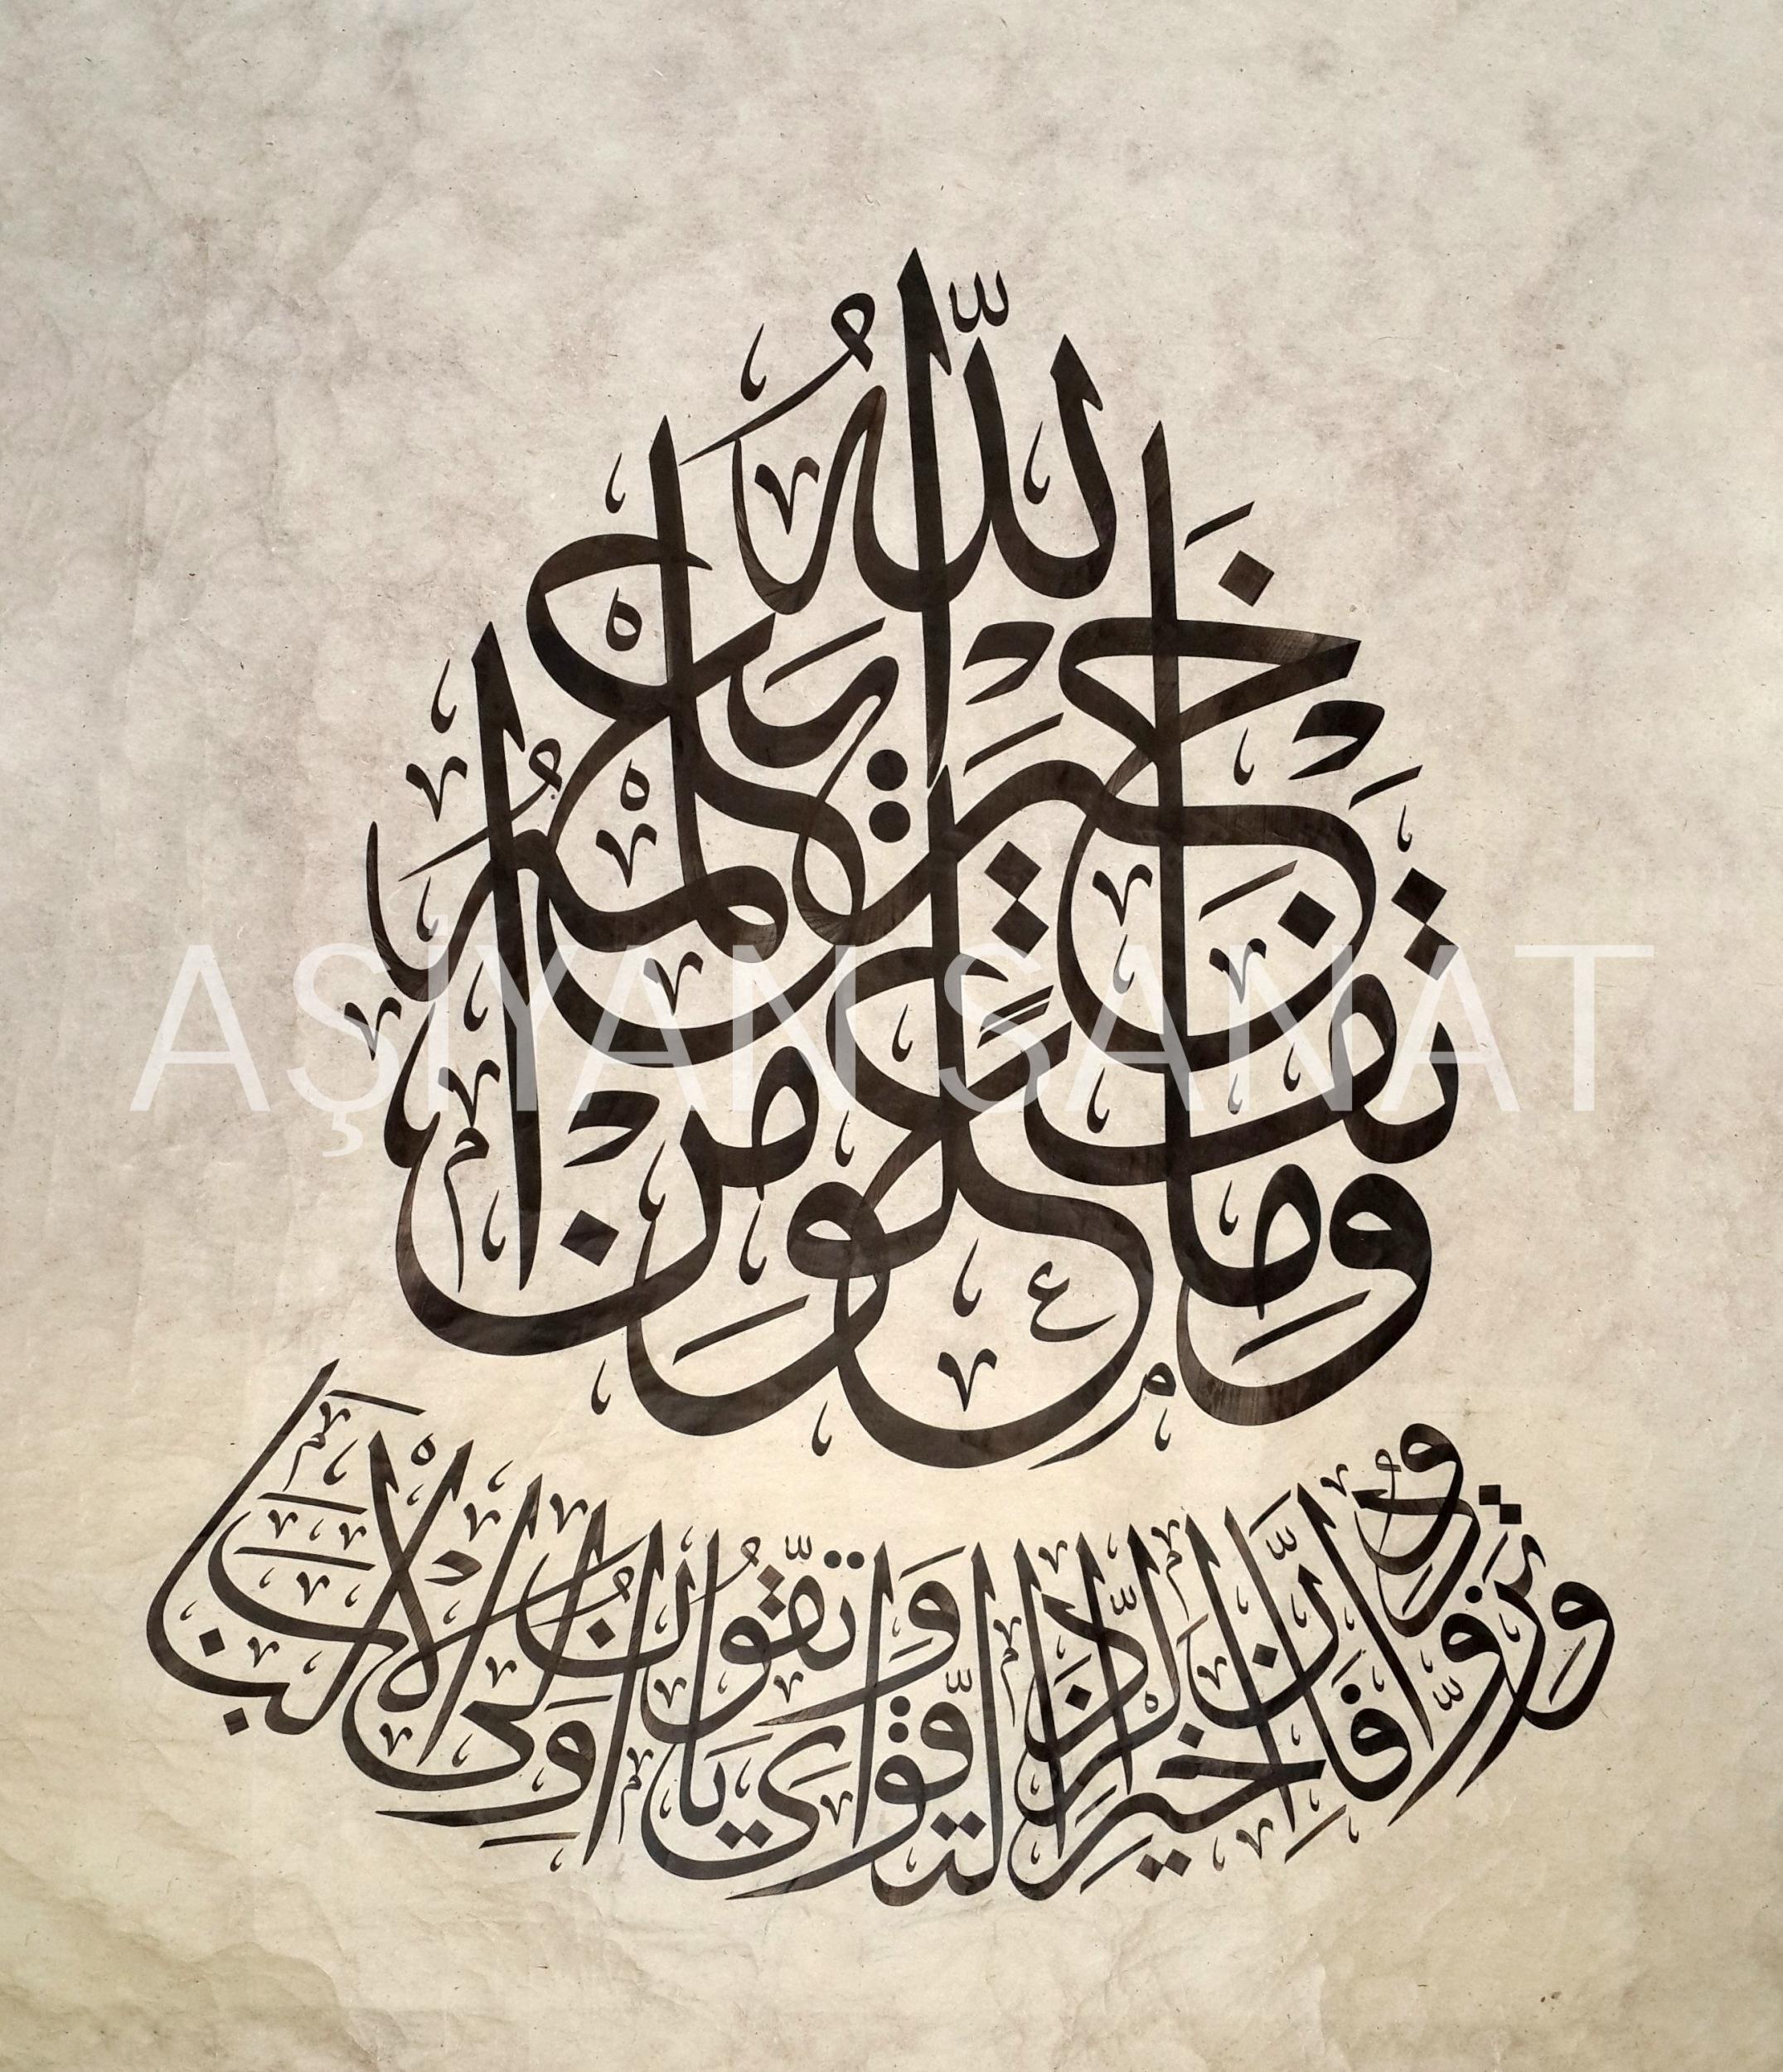 وما تفعلوا من خير يعلمه الله
وتزودوا فإن خير الزاد التقوى واتقون يا أولي الألباب
AŞİYAN SANAT